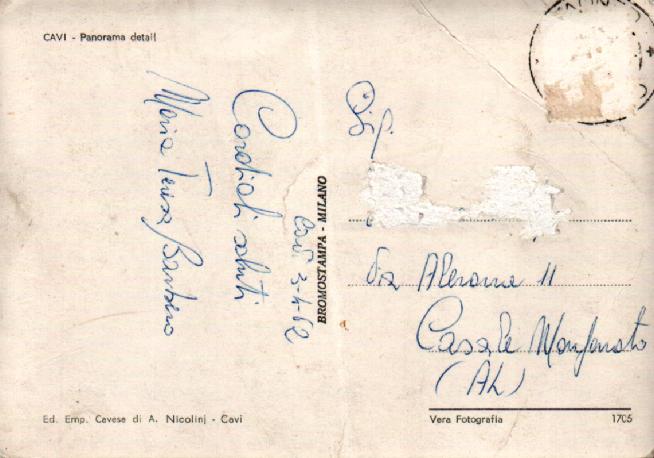 CAVI - Panorama detail
Cavi 3-4-62
Cordiali saluti
Maria Teresa
BROMOSTAMPA - MILANO
Via Alerame 11
Casale Monferrato
(AL)
Ed. Emp. Cavese di A. Nicolini - Cavi
Vera Fotografia 1705